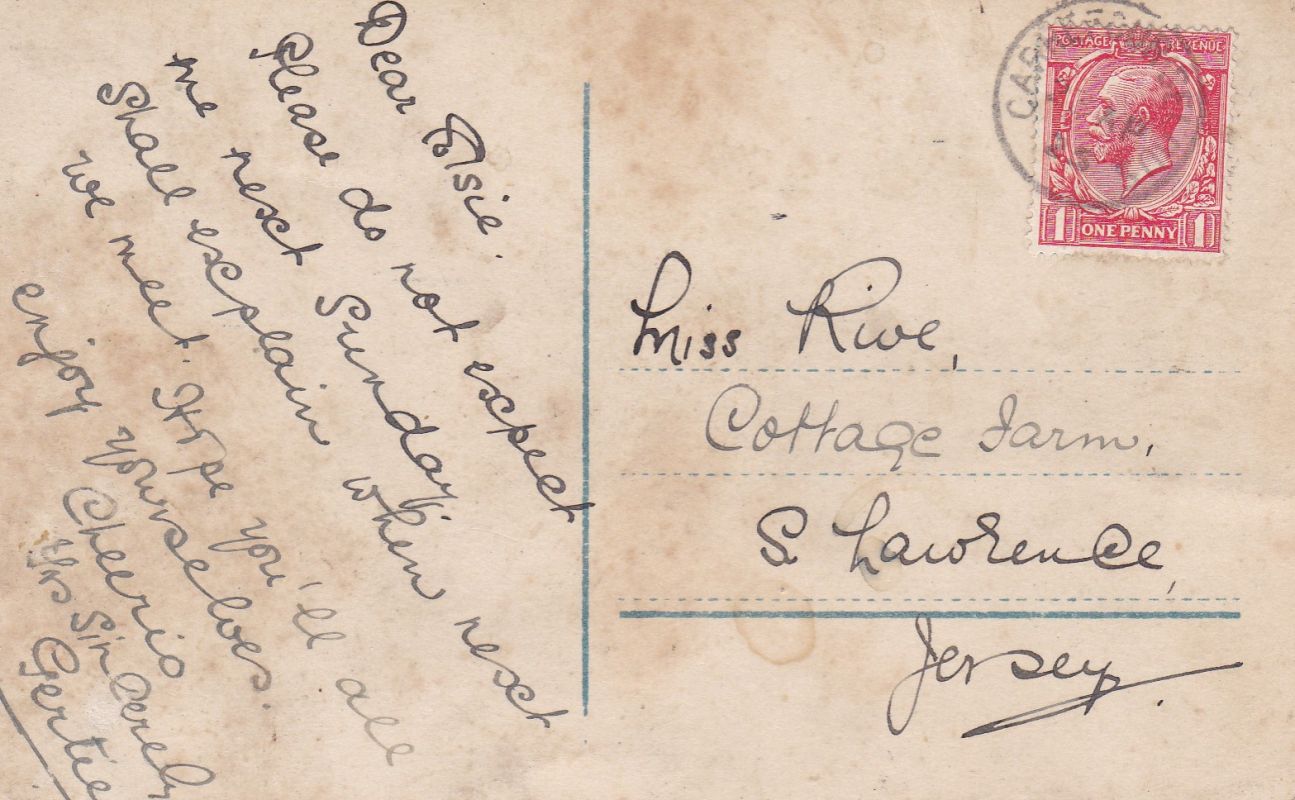 Dear Elsie.
Please do not expect
me next Sunday.
Shall explain when next
we meet. Hope you'll all
enjoy yourselves.
Cheerio
Yrs Sincerely
Gertie
POSTAGE REVENUE
1 ONE PENNY 1
Miss Rive,
Cottage Farm,
S. Lawrence,
Jersey.